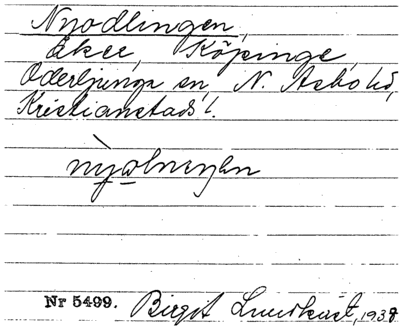 Nyodlingen,
Ekee, Köpinge,
Oderljunga sn, N. Åsbo hd,
Kristianstads l.
Nr 5499. Birgit Lundkvist, 1938.